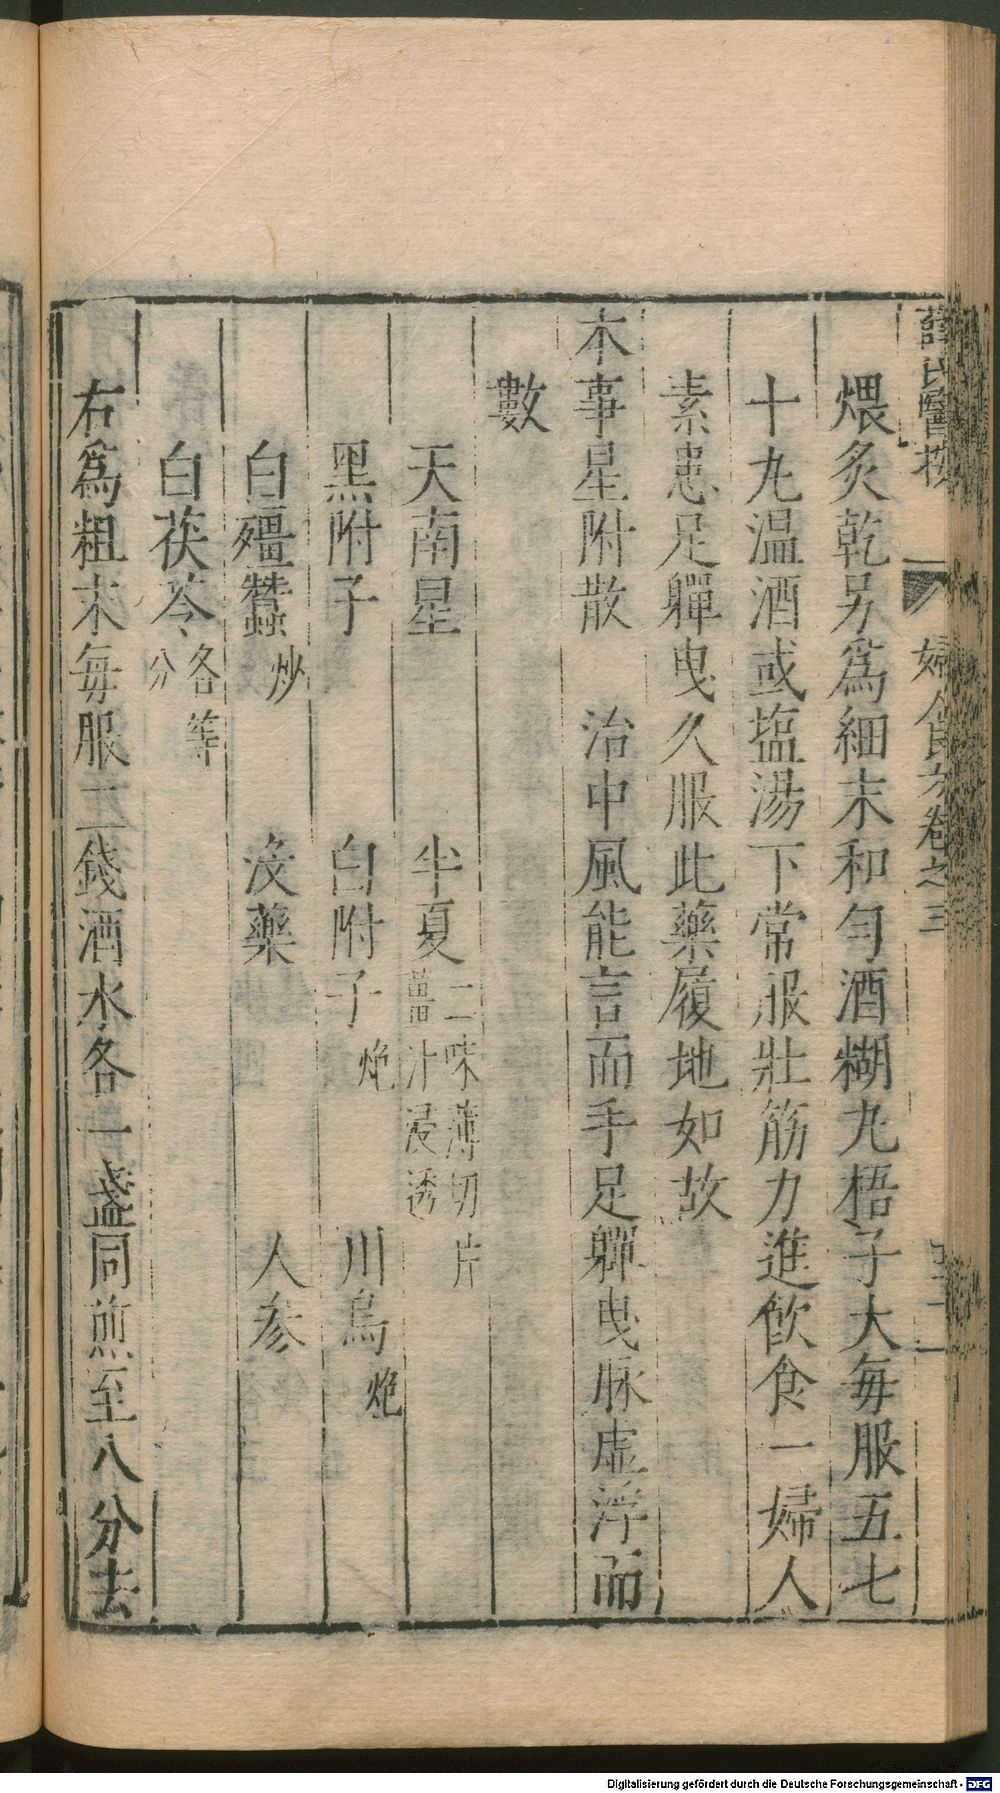 薛氏醫按
婦人良方卷之三
煨炙乾另爲細末和勻酒糊丸梧子大每服五七
十丸温酒或塩湯下常服壯筋力進飲食一婦人
素患足軃曳久服此藥履地如故
本事星附散　治中風能言而手足軃曳脉虚浮而
數
天南星　半夏二味薄切片薑汁浸透
黑附子　白附子炮　川烏炮
白殭蠶炒　没藥　人参
白茯苓各等分
右爲粗末每服二錢酒水各一盞同煎至八分去
Digitalisierung gefördert durch die Deutsche Forschungsgemeinschaft - DFG